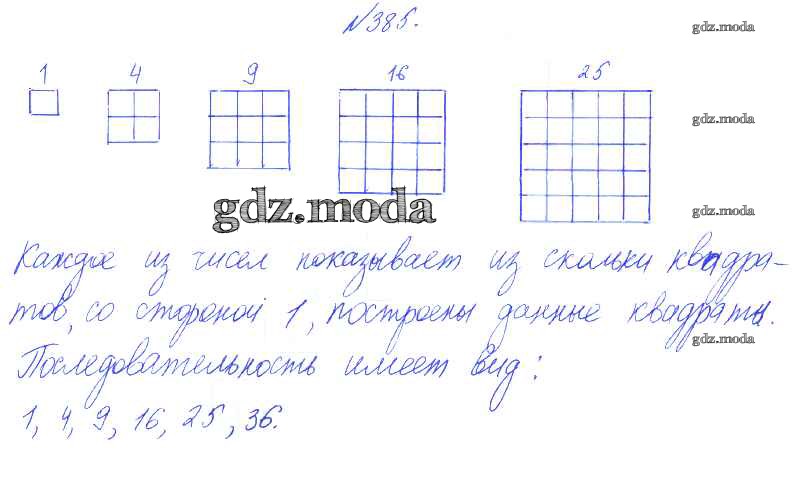 №385.
gdz.moda
1 4 9 16 25
gdz.moda
gdz.moda
gdz.moda
Каждое из чисел показывает из скольки квадра-
тов, со стороной 1, построены данные квадраты.
gdz.moda
Последовательность имеет вид:
1, 4, 9, 16, 25, 36.
gdz.moda